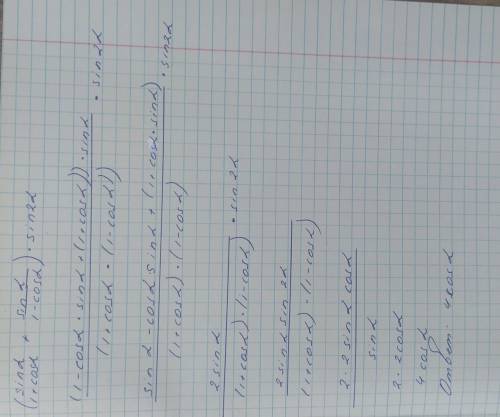 (sinα/1+cosα + sinα/1-cosα) · sin2α
(1-cosα · sinα + (1+cosα)) · sinα / (1+cosα · (1-cosα)) · sin2α
sinα - cosα sinα + (1+cosα · sinα) / (1+cosα) · (1-cosα) · sin2α
2sinα / (1+cosα) · (1-cosα) · sin2α
2sinα sin2α / (1+cosα) · (1-cosα)
2 · 2sinα cosα / sinα
2 · 2cosα
4cosα
Ответ: 4cosα